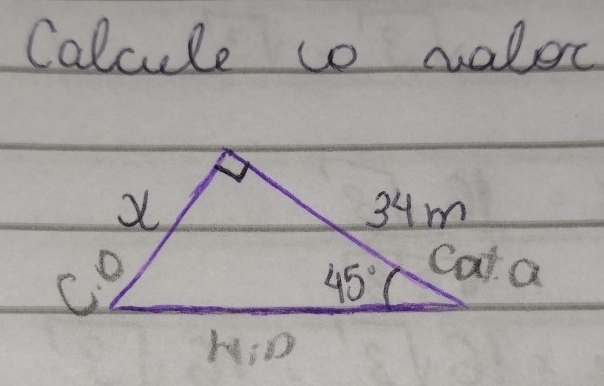 Calcule o valor
x
34 m
C.O
45°
Cat. a
Hip